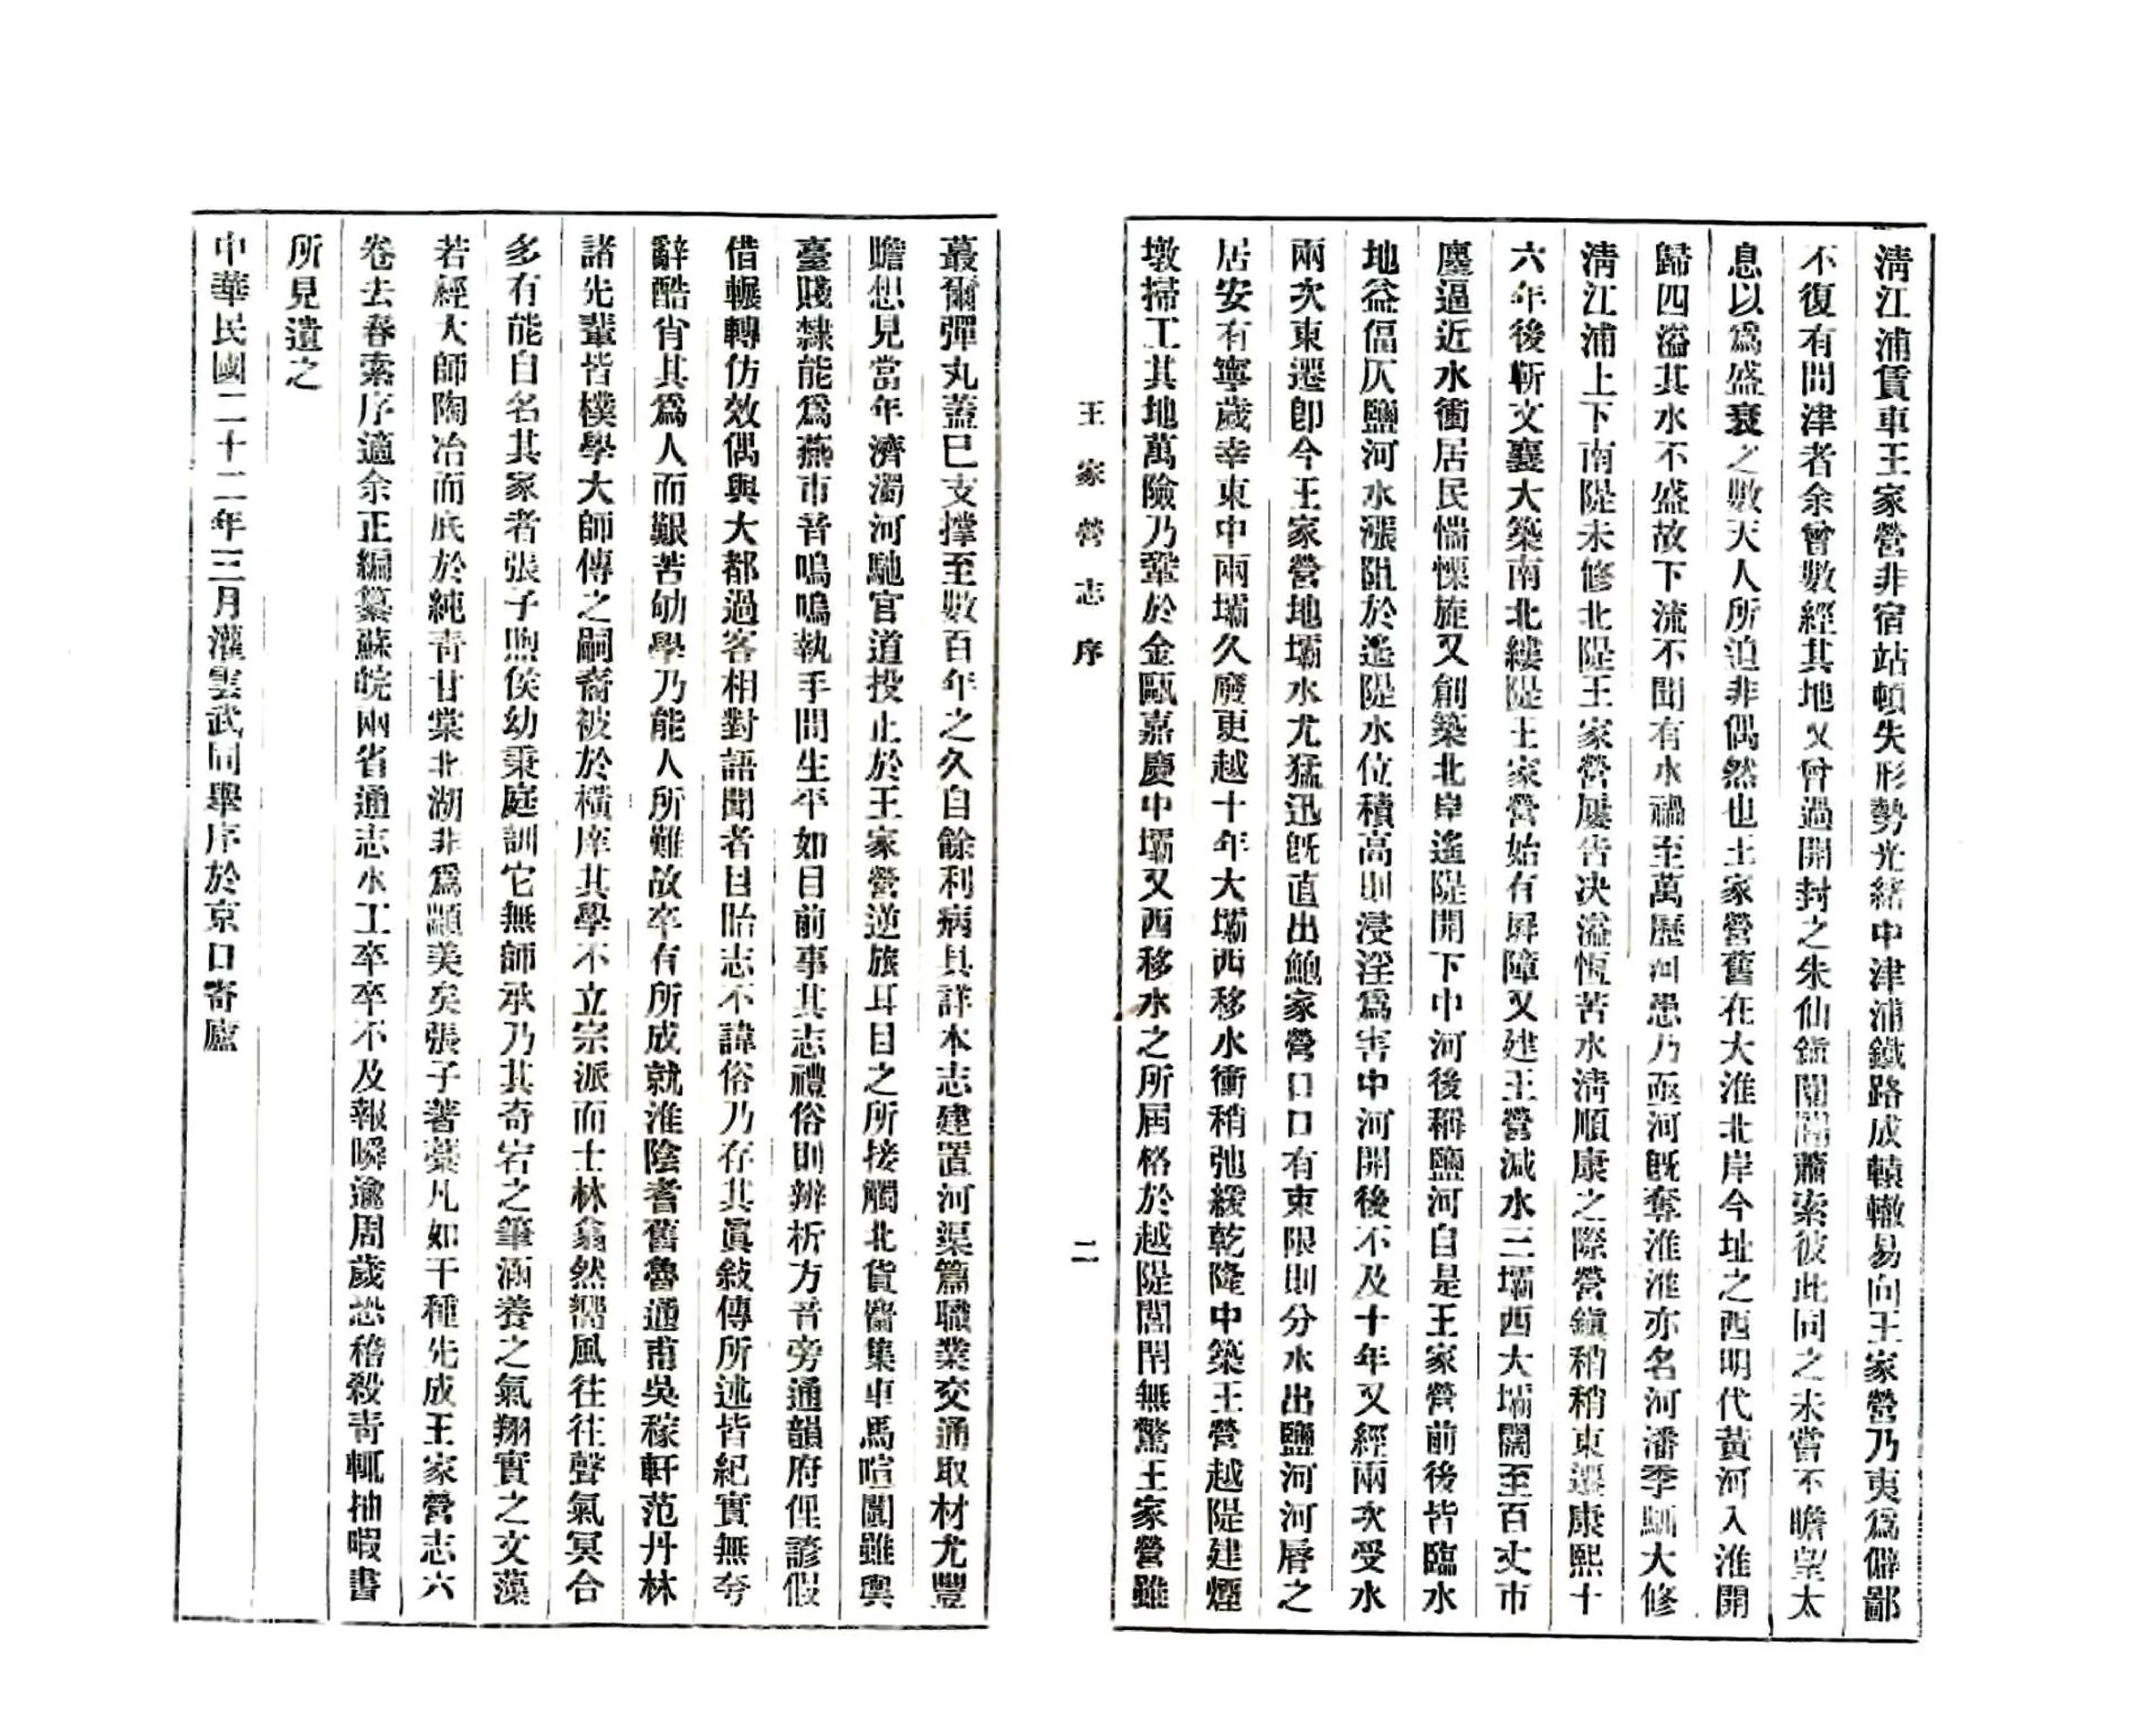 淸江浦賃車王家營非宿站頓失形勢光緖中津浦鐵路成轅轍易向王家營乃夷爲僻鄙
不復有問津者余曾數經其地又曾過開封之朱仙鎭闤闠蕭索彼此同之未嘗不瞻望太
息以爲盛衰之數天人所迫非偶然也王家營舊在大淮北岸今址之西明代黃河入淮開
歸四溢其水不盛故下流不聞有水禍至萬歷河患乃亟河旣奪淮淮亦名河潘季馴大修
淸江浦上下南隄未修北隄王家營屢告決溢恆苦水淸順康之際營鎭稍稍東遷康熙十
六年後靳文襄大築南北縷隄王家營始有屛障又建王營減水三壩西大壩闊至百丈市
廛逼近水衝居民惴慄旋又創築北岸遙隄開下中河後稱鹽河自是王家營前後皆臨水
地益偪仄鹽河水漲阻於遙隄水位積高則浸淫爲害中河開後不及十年又經兩次受水
兩次東遷卽今王家營地壩水尤猛迅旣直出鮑家營口口有束限則分水出鹽河河脣之
居安有寧歲幸東中兩壩久廢更越十年大壩西移水衝稍弛緩乾隆中築王營越隄建煙
墩掃工其地萬險乃鞏於金甌嘉慶中壩又西移水之所屆格於越隄閭閈無驚王家營雖
王家營志序
二
蕞爾彈丸蓋已支撐至數百年之久自餘利病具詳本志建置河渠篇職業交通取材尤豐
贍想見當年濟濁河馳官道投止於王家營逆旅耳目之所接觸北貨齎集車馬喧闐雖輿
臺賤隸能爲燕市音嗚嗚執手問生平如目前事其志禮俗則辨析方音旁通韻府俚諺假
借輾轉仿效偶與大都過客相對語聞者目眙志不諱俗乃存其眞敍傳所述皆紀實無夸
辭酷肖其爲人而艱苦劬學乃能人所難故卒有所成就淮陰耆舊魯通甫吳稼軒范丹林
諸先輩皆樸學大師傳之嗣裔被於橫庠其學不立宗派而士林翕然嚮風往往聲氣冥合
多有能自名其家者張子煦侯幼秉庭訓它無師承乃其奇宕之筆涵養之氣翔實之文藻
若經大師陶冶而底於純靑甘棠北湖非爲顓美矣張子著藁凡如干種先成王家營志六
卷去春索序適余正編纂蘇皖兩省通志水工卒卒不及報瞬逾周歲恐稽殺靑輒抽暇書
所見遺之
中華民國二十二年三月灌雲武同擧序於京口寄廬